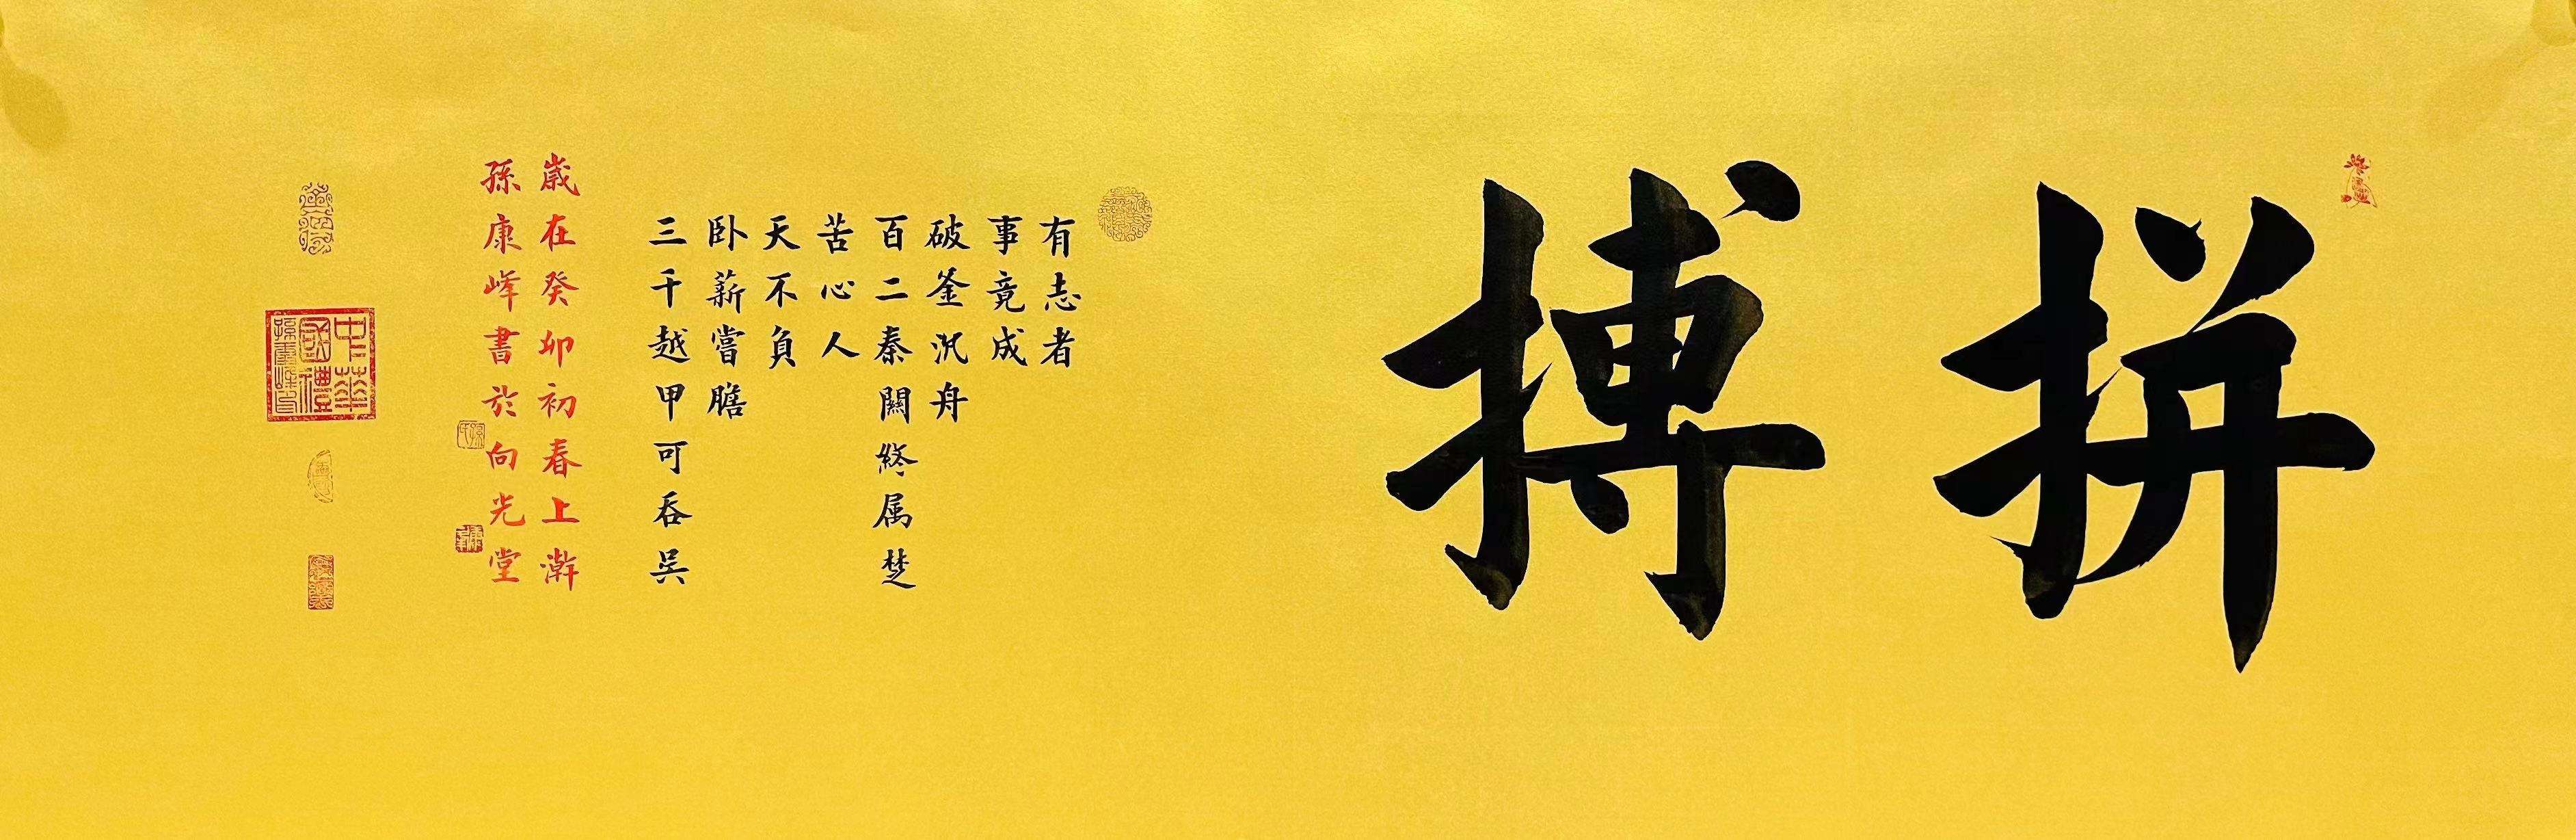 拼搏
有志者
事竟成
破釜沉舟
百二秦關終属楚
苦心人
天不負
卧薪嘗膽
三千越甲可吞吴
歲在癸卯初春上澣
孫康峰書於向光堂
中華
國禮
孫康峰印
孫氏